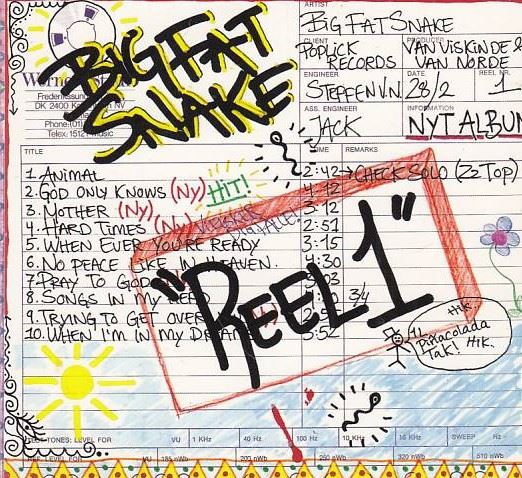 BIG FAT
SNAKE
ARTIST
BIG FAT SNAKE
CLIENT
POPLICK
RECORDS
PRODUCER
VAN VISKINDE &
VAN NORDE
ENGINEER
STEFFEN V.N.
DATE
28/2
REEL NR.
1
ASS. ENGINEER
JACK
INFORMATION
NYT ALBUM
DK 2400 NV
Phone:(01)
Telex: 1512
TITLE
TIME
REMARKS
1. ANIMAL 2:42 → CHECK SOLO (ZZ TOP)
2. GOD ONLY KNOWS (NY) HIT! 4:12
3. MOTHER (NY) 3:12
4. HARD TIMES (NY) 2:51
5. WHEN EVER YOU'RE READY 3:15
6. NO PEACE LIKE IN HEAVEN. 4:30
7. PRAY TO GOD :03
8. SONGS IN MY 3/4
9. TRYING TO GET OVER
10. WHEN I'M IN MY 3:52
"REEL 1"
HIK
PIÑACOLADA
TAK! HIK.
TEST TONES: LEVEL FOR VU 1 KHz 40 Hz 100 Hz 10 KHz 16 KHz SWEEP Hz
REF. LEVEL FOR VU 185 nWb 200 nWb 260 nWb 320 nWb 510 nWb